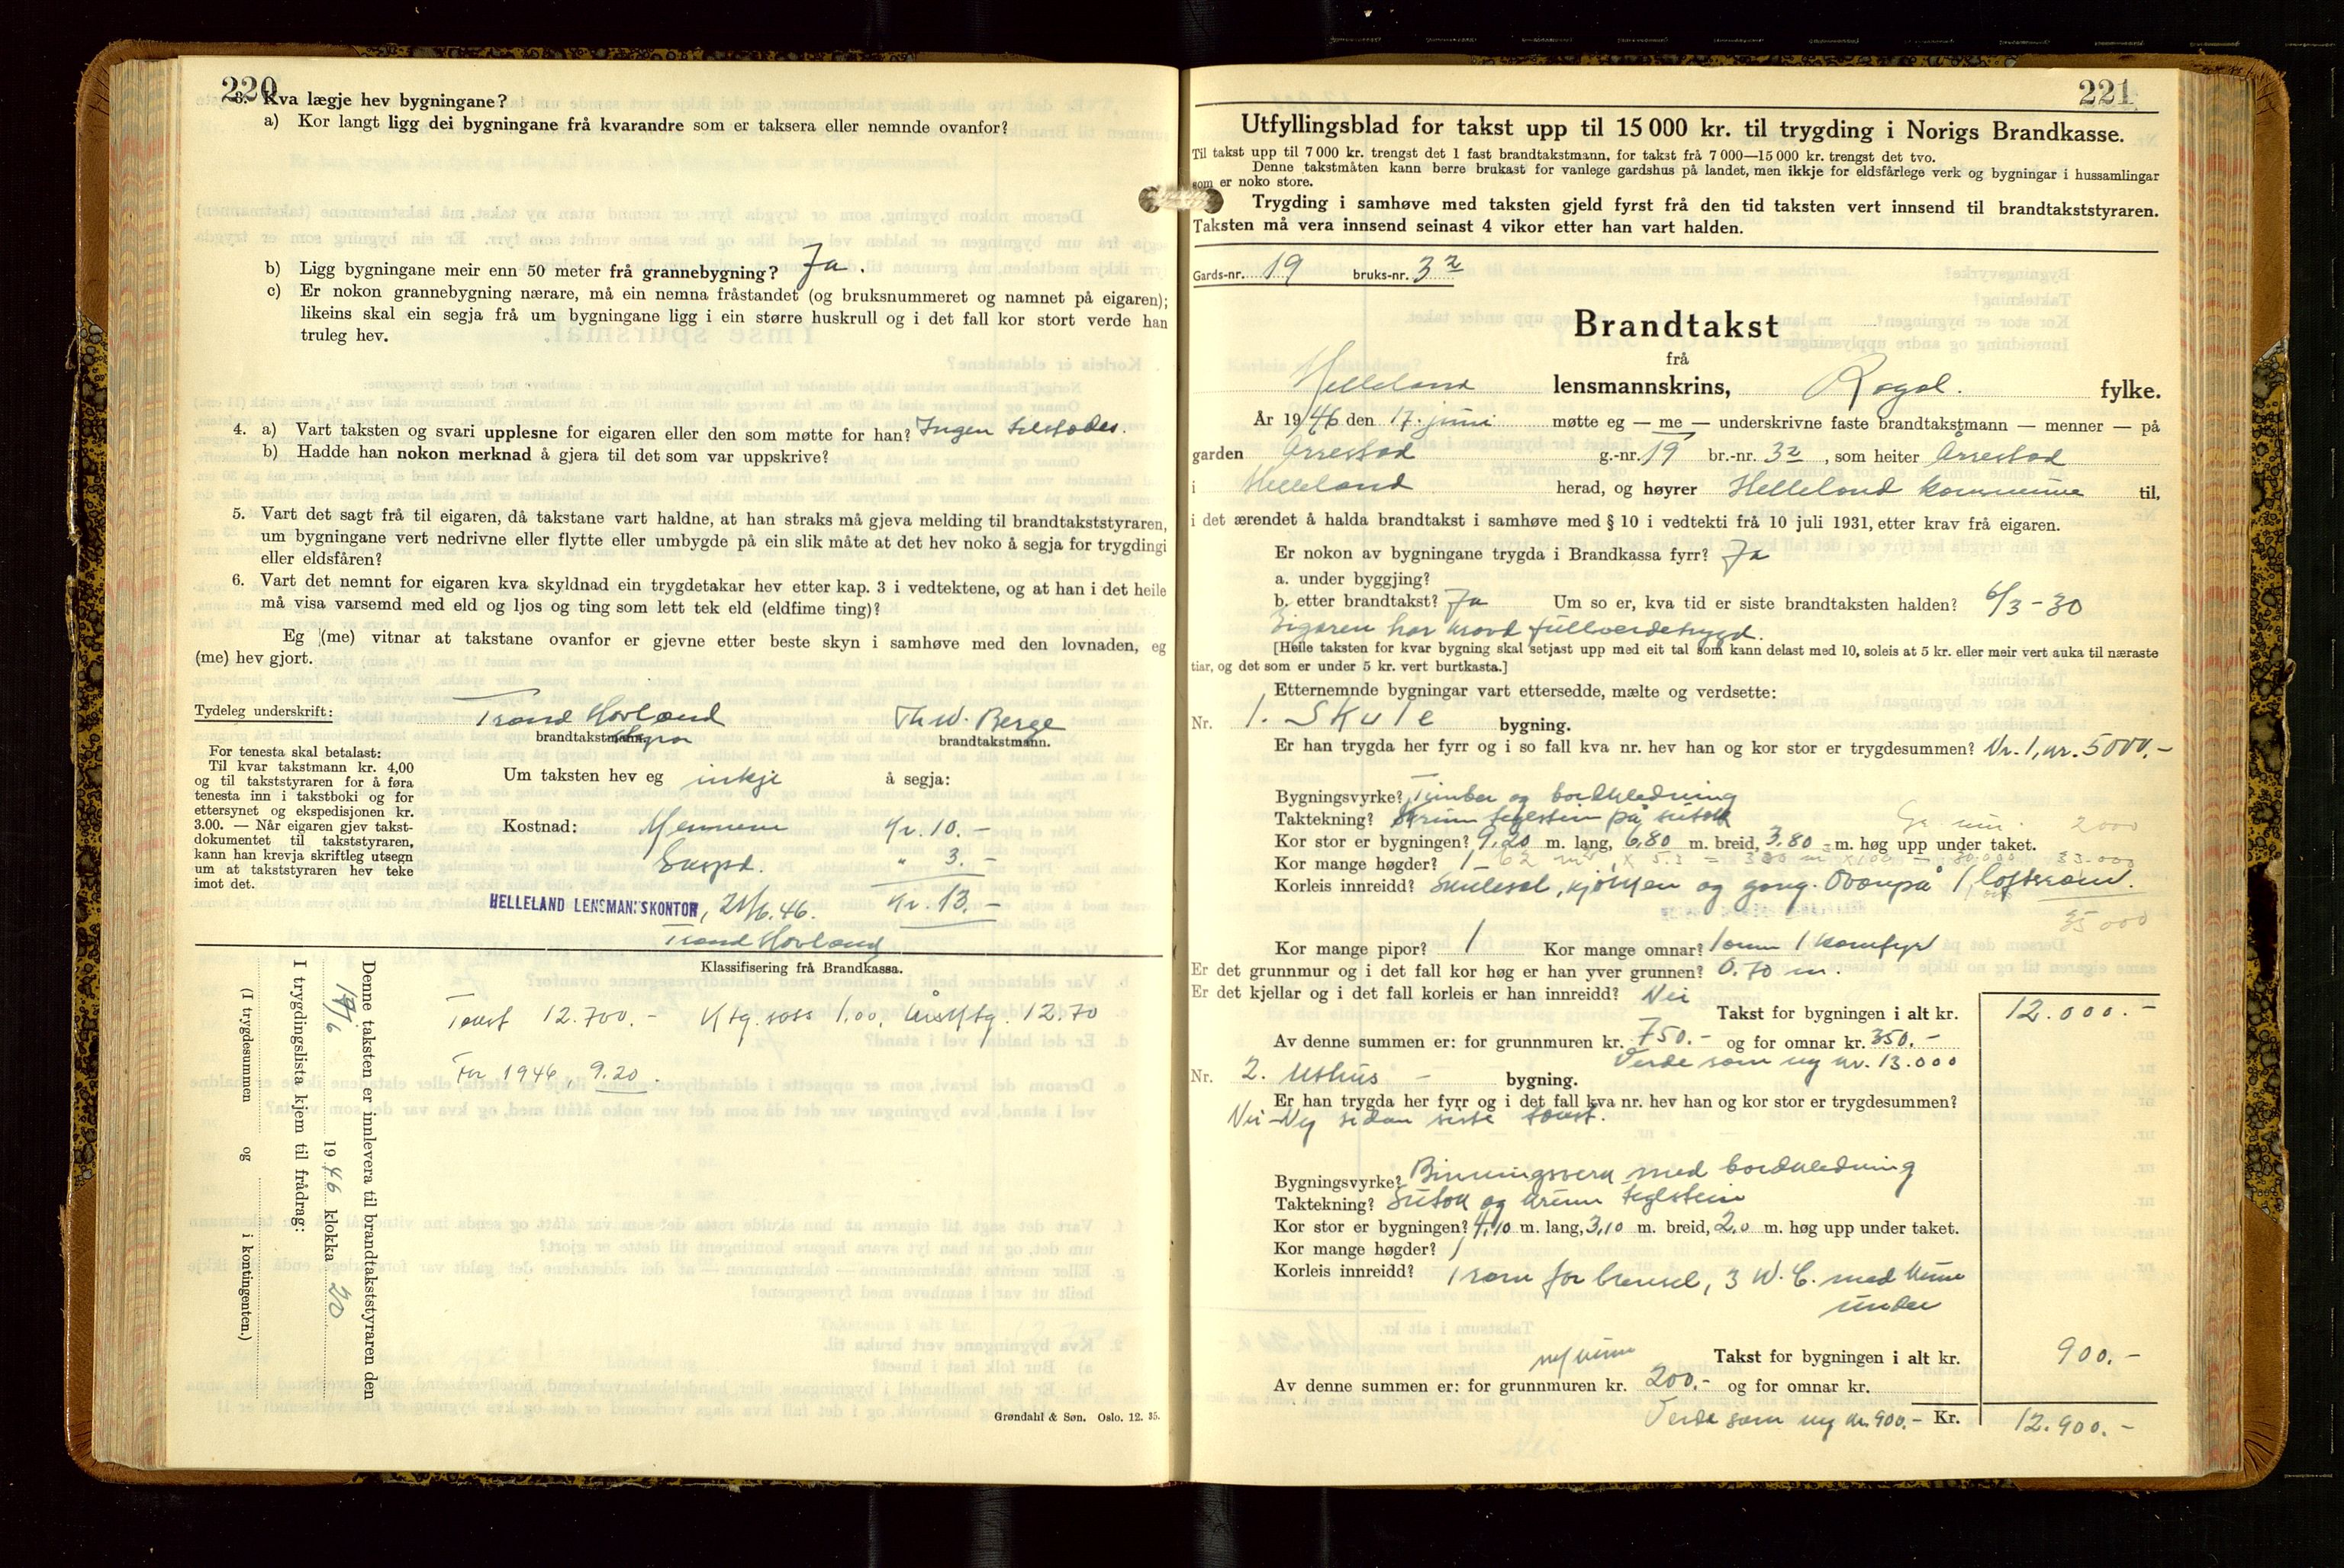 220
3. Kva lægje hev bygningane?
a) Kor langt ligg dei bygningane frå kvarandre som er taksera eller nemnde ovanfor?
b) Ligg bygningane meir enn 50 meter frå grannebygning? Ja.
c) Er nokon grannebygning nærare, må ein nemna fråstandet (og bruksnummeret og namnet på eigaren);
likeins skal ein segja frå um bygningane ligg i ein større huskrull og i det fall kor stort verde han
truleg hev.
4. a) Vart taksten og svari upplesne for eigaren eller den som møtte for han? Ingen tilstades.
b) Hadde han nokon merknad å gjera til det som var uppskrive?
5. Vart det sagt frå til eigaren, då takstane vart haldne, at han straks må gjeva melding til brandtakststyraren,
um bygningane vert nedrivne eller flytte eller umbygde på ein slik måte at det hev noko å segja for trygdingi
eller eldsfåren?
6. Vart det nemnt for eigaren kva skyldnad ein trygdetakar hev etter kap. 3 i vedtektene, og at han i det heile
må visa varsemd med eld og ljos og ting som lett tek eld (eldfime ting)?
Eg (me) vitnar at takstane ovanfor er gjevne etter beste skyn i samhøve med den lovnaden, eg
(me) hev gjort.
Tydeleg underskrift: Trond Hovland Th. W. Berge
brandtakstmann. brandtakstmann.
For tenesta skal betalast:
Til kvar takstmann kr. 4,00
og til takststyraren for å føra
tenesta inn i takstboki og for
ettersynet og ekspedisjonen kr.
3.00. — Når eigaren gjev takst-
dokumentet til takststyraren,
kann han krevja skriftleg utsegn
um at takststyraren hev teke
imot det.
Um taksten hev eg inkje å segja:
Kostnad: Mennene Kr. 10.-
Eksped. " 3.-
Kr. 13.-
HELLELAND LENSMANSKONTOR, 21/6.46.
Trond Hovland
Klassifisering frå Brandkassa.
Takst 12.700.- Ktg. sats 1.00, Årsktg. 12.70
For 1946, 9.20.
Denne taksten er innlevera til brandtakststyraren den
19/6 1946 klokka 20
I trygdingslista kjem til frådrag:
(I trygdesummen og i kontingenten.)
Grøndahl & Søn. Oslo. 12. 35.
221
Utfyllingsblad for takst upp til 15 000 kr. til trygding i Norigs Brandkasse.
Til takst upp til 7 000 kr. trengst det 1 fast brandtakstmann, for takst frå 7 000—15 000 kr. trengst det tvo.
Denne takstmåten kann berre brukast for vanlege gardshus på landet, men ikkje for eldsfårlege verk og bygningar i hussamlingar
som er noko store.
Trygding i samhøve med taksten gjeld fyrst frå den tid taksten vert innsend til brandtakststyraren.
Taksten må vera innsend seinast 4 vikor etter han vart halden.
Gards-nr. 19 bruks-nr. 32
Brandtakst
frå
Helleland lensmannskrins, Rogal. fylke.
År 1946 den 17. juni møtte eg — me — underskrivne faste brandtakstmann — menner — på
garden Årrestad g.-nr. 19 br.-nr. 32, som heiter Årrestad
i Helleland herad, og høyrer Helleland kommune til,
i det ærendet å halda brandtakst i samhøve med § 10 i vedtekti frå 10 juli 1931, etter krav frå eigaren.
Er nokon av bygningane trygda i Brandkassa fyrr? Ja
a. under byggjing?
b. etter brandtakst? Ja Um so er, kva tid er siste brandtaksten halden? 6/3-30
Eigaren har kravd fullverdetrygd.
[Heile taksten for kvar bygning skal setjast upp med eit tal som kann delast med 10, soleis at 5 kr. eller meir vert auka til næraste
tiar, og det som er under 5 kr. vert burtkasta.]
Etternemnde bygningar vart ettersedde, mælte og verdsette:
Nr. 1. Skule bygning.
Er han trygda her fyrr og i so fall kva nr. hev han og kor stor er trygdesummen? Nr. 1, kr. 5000.-
Bygningsvyrke? Timber og bordkledning
Taktekning? Krum teglstein på sutak
2000
Kor stor er bygningen? 9,20 m. lang, 6,80 m. breid, 3,80 m. høg upp under taket.
Kor mange høgder? 1 33.000
Korleis innreidd? Skulesal, kjøkken og gang. Ovenpå 1 loftsrom.
35000
Kor mange pipor? 1 Kor mange omnar? 1 omn 1 komfyr
Er det grunnmur og i det fall kor høg er han yver grunnen? 0.70 m.
Er det kjellar og i det fall korleis er han innreidd? Nei
Takst for bygningen i alt kr. 12.000.-
Av denne summen er: for grunnmuren kr. 750.- og for omnar kr. 350.-
Verde som ny kr. 13.000
Nr. 2. Uthus - bygning.
Er han trygda her fyrr og i det fall kva nr. hev han og kor stor er trygdesummen?
Nei - Ny sidan siste takst.
Bygningsvyrke? Binningsverk med bordkledning
Taktekning? Sutak og krum teglstein
Kor stor er bygningen? 4,10 m. lang, 3,10 m. breid, 2,0 m. høg upp under taket.
Kor mange høgder? 1
Korleis innreidd? 1 rom for brensel, 3 W.C. med kum
under
m/ kum
Takst for bygningen i alt kr. 900.-
Av denne summen er: for grunnmuren kr. 200.- og for omnar kr.
Verde som ny kr. 900.- Kr. 12.900.-